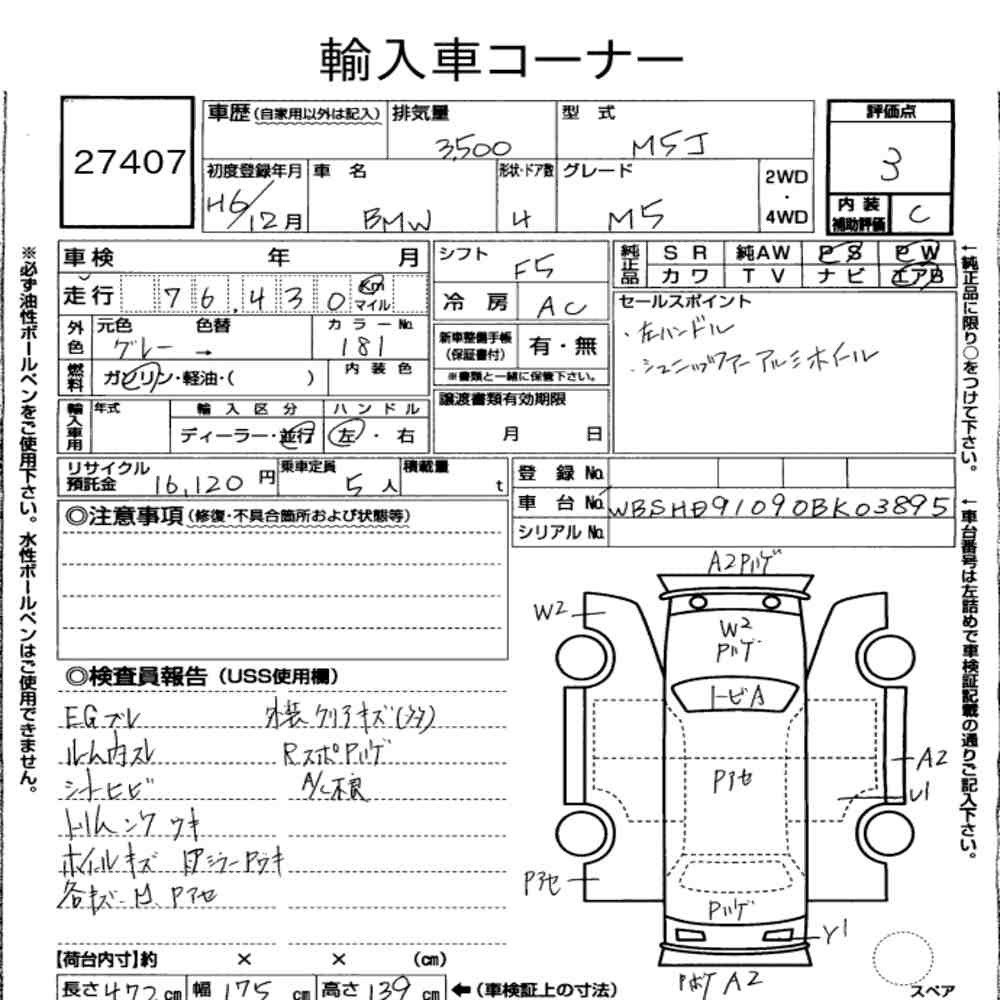 輸入車コーナー
27407
車歴(自家用以外は記入) 排気量 型式
3,500 M5J
評価点
3
初度登録年月 車名 形状・ドア数 グレード 2WD・4WD
H6/12月 BMW 4 M5
内装補助評価 C
車検 年 月
シフト F5
純正品 SR 純AW PS PW
カワ TV ナビ エアB
走行 76,430 Km マイル
冷房 AC
セールスポイント
・左ハンドル
・シュニッツァーアルミホイル
外色 元色 色替 カラーNo.
グレー → 181
新車整備手帳(保証書付) 有・無
※書類と一緒に保管下さい。
燃料 ガソリン・軽油・( ) 内装色
譲渡書類有効期限
月 日
輸入車用 年式 輸入区分 ハンドル
ディーラー・並行 左・右
リサイクル預託金 16,120円 乗車定員 5人 積載量 t
登録No.
車台No. WBSHD91090BK03895
シリアルNo.
◎注意事項(修復・不具合箇所および状態等)
◎検査員報告(USS使用欄)
EGブレ 外装クリアキズ(多)
ルーム内スレ RスポPハゲ
シートヒビ A/C不良
トリムシワ ウキ
ホイルキズ
各キズ・凹、Pアセ
A2Pハゲ
W2
W2
Pハゲ
トビA
Pアセ
A2
U1
Pアセ
Pハゲ
Y1
PボケA2
スペア
【荷台内寸】約 × × (cm)
長さ472cm 幅175cm 高さ139cm ←(車検証上の寸法)
※必ず油性ボールペンをご使用下さい。水性ボールペンはご使用できません。
←純正品に限り○をつけて下さい。
←車台番号は左詰めで車検証記載の通りご記入下さい。